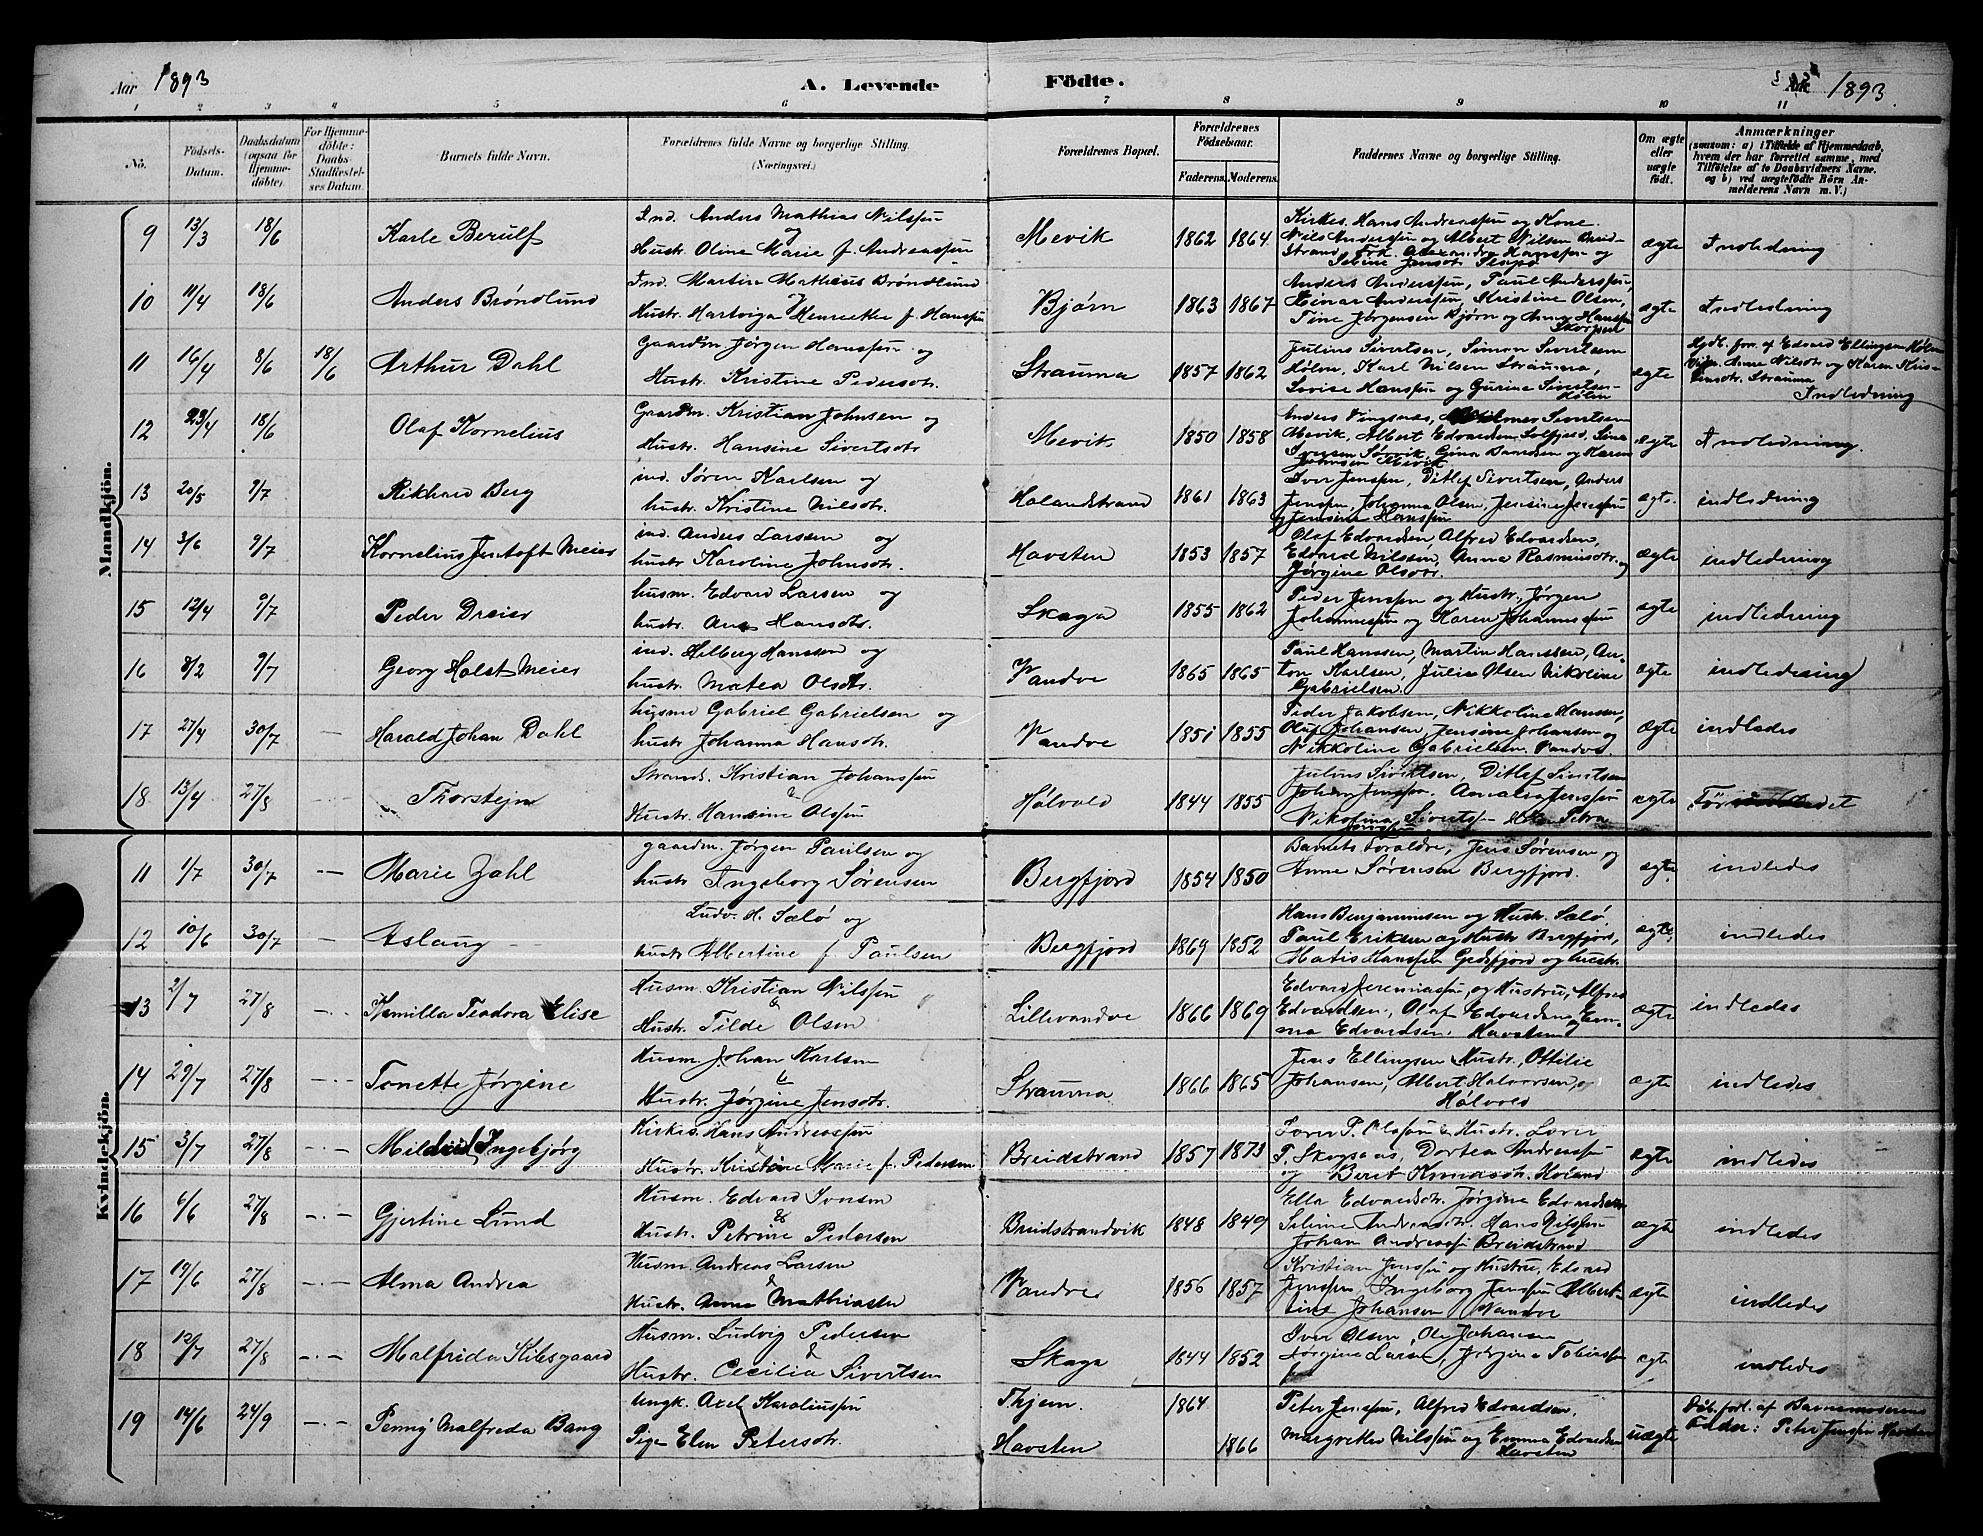 Aar 1893
A. Levende Födte.
1893.
1 2 3 4 5 6 7 8 9 10 11
No.
Födsels-Datum.
Daabsdatum (ogsaa for Hjemme-döbte).
For Hjemme-döbte: Daabs-Stadfæstel-ses Datum.
Barnets fulde Navn.
Forældrenes fulde Navne og borgerlige Stilling. (Næringsvei.)
Forældrenes Bopæl.
Forældrenes Födselsaar.
Faderens. Moderens.
Faddernes Navne og borgerlige Stilling.
Om ægte eller uægte födt.
Anmærkninger
(saasom: a) i Tilfælde af Hjemmedaab, hvem der har forrettet samme, med Tilföielse af to Daabsvidners Navne. og b) ved uægtefödte Börn An-melderens Navn m. V.)
Mandkjön.
9 13/3 18/6 Karle Berulf
Ind. Anders Mathias Nilssen og
Hustr. Oline Marie f. Andreassen
Mevik 1862 1864
Kirkes. Hans Andreassen og Kone
Nils Anderssen og Albert Nilsen Breid-
strand, Frk. Alexandra Hanssen og
ægte Indledning
10 11/4 18/6 Anders Bröndlund
Ind. Martin Matheus Bröndlund
Hustr. Hartviga Henrikke f. Hanssen
Bjørn 1863 1867
Anders Anderssen, Paul Anderssen,
Einar Anderssen, Kristine Olsen,
Tine Jørgensen Bjørn og Anna Hanssen
ægte Indledning
11 16/4 8/6 18/6 Arthur Dahl
Gaardm. Jørgen Hanssen og
Hustr. Kristine Pedersdtr.
Strauma 1857 1862
Julius Sivertsen, Simon Sivertsen
Hølen, Karl Nilsen Strauma,
Lovise Hanssen og Gurine Sivertsen
Hølen
ægte
Hjdb. forr. af Edvard Ellingsen Hølen
Strauma
Indledning
12 23/4 18/6 Olaf Kornelius
Gaardm. Kristian Johnsen og
Hustr. Hansine Sivertsdtr
Mevik 1850 1858
Mevik, Albert Edvardsen
Johnsen Mevik
ægte Indledning.
13 20/5 9/7 Rikhard Berg
ind. Søren Karlsen og
hustr. Kristine Nilsdtr.
Holandstrand 1861 1863
Iver Jenssen, Ditlef Sivertsen, Anders
Jenssen, Johanna Olsen, Jensine Jenssen
og Jensine Hanssen
ægte indledning
14 3/6 9/7 Kornelius Jentoft Meier
ind. Anders Larsen og
hustr Karoline Johnsdtr.
Havsten 1853 1857
Olaf Edvardsen Alfred Edvardsen,
Edvard Nilssen, Anna Rasmusdtr. og
Jørgine Olsdtr.
ægte indledning
15 12/4 9/7 Peder Dreier
husm. Edvard Larsen og
hustr. Ane Hansdtr.
Skaga 1855 1862
Peder Jenssen og Hustr., Jørgen
Johannessen og Karen Johannessen
ægte indledning
16 8/2 9/7 Georg Holst Meier
ind. Hilberg Hanssen og
hustr. Matea Olsdtr.
Vandve 1865 1865
Paul Hanssen, Martin Hanssen, An-
ton Karlsen, Julie Olsen Nikoline
Gabrielsen.
ægte indledning
17 27/4 30/7 Harald Johan Dahl
husmd Gabriel Gabrielsen og
hustr Johanna Hansdtr.
Vandve 1851 1855
Peder Jakobsen, Nikkoline Hansen,
Oluf Johansen, Jensine Johansen og
Nikkoline Gabrielsen. Vandve
ægte indledes
18 13/4 27/8 Thorstejn
Strands. Kristian Johanssen
&
Hustr. Hansine Olssen
Hölvold 1844 1855
Julius Sivertsen, Ditlef Sivertsen
Johan Jenssen. Amalia Jenssen
Nikolina Sivertsen Petra
ægte
Kvindekjön.
11 1/7 30/7 Marie Zahl
gaardm. Jørgen Paulsen og
hustr Ingeborg Sørensen
Bergfjord 1854 1850
Barnets Forældre, Jens Sørensen og
Anne Sørensen Bergfjord.
ægte indledes
12 10/6 30/7 Aslaug
Ludv. H. Sælø og
hustr Albertine f. Paulsen
Bergfjord 1869 1852
Hans Benjaminsen og Hustr. Sælø,
Paul Eriksen og Hustr Bergfjord,
Matis Hanssen Gedsfjord og hustr.
ægte indledes
13 2/7 27/8 Kamilla Teodora Elise
Husm. Kristian Nilssen
&
Hustr. Tilde Olsen
Lillevandve 1866 1869
Edvard Jeremiassen, og Hustru, Alfred
Edvardsen, Olaf Edvardsen og Em-
ma Edvardsen. Havsten
ægte indledes
14 29/7 27/8 Tonette Jørgine
Husm. Johan Karlsen
&
Hustr. Jørgine Jensdtr.
Strauma 1866 1865
Jens Ellingsen Hustr. Ottilie
Johansen, Albert Halvorsen, og
Hölvold
ægte indledes
15 3/7 27/8 Mildrid Ingebjørg
Kirkes. Hans Andreassen
Hustr. Kristine Marie f. Pedersen
Breidstrand 1857 1873
P. Skogsaas, Dortea Andreassen
og Berit Knudsdtr. Høland
ægte indledes
16 6/6 27/8 Gjertine Lund
Husm. Edvard Iversen
&
Hustr. Petrine Pedersen
Breidstrandvik 1848 1849
Ella Edvardsdtr. Jørgine Edvardsen
Seline Andreasdtr. Hans Nilssen
Johan Andreassen Breidstrand
ægte indledes
17 19/6 27/8 Alma Andrea
Husm. Andreas Larsen
&
Hustr. Anne Mathiassen
Vandve 1856 1857
Kristian Jenssen og Hustru, Edvard
Jenssen, Ingeborg Jenssen Albert-
ine Johansen Vandve
ægte indledes
18 12/7 27/8 Malfrida Kilsgaard
Husm. Ludvig Pedersen
&
Hustr. Cecilia Sivertsen
Skaga 1844 1852
Iver Olsen, Ole Johansen
Jørgine Larsen, Jørgine Tobiassen
ægte indledes
19 14/6 24/9 Penny Malfreda Bang
Ungk. Axel Karoliussen
Pige Elen Petersdtr.
Thjem. 1864
Havsten 1866
Peter Jenssen, Alfred Edvardsen,
Margrethe Nilssen og Emma Edvardsen
Havsten
uægte
Döb. forl. af Barnemoderens
Fader: Peter Jenssen Havsten